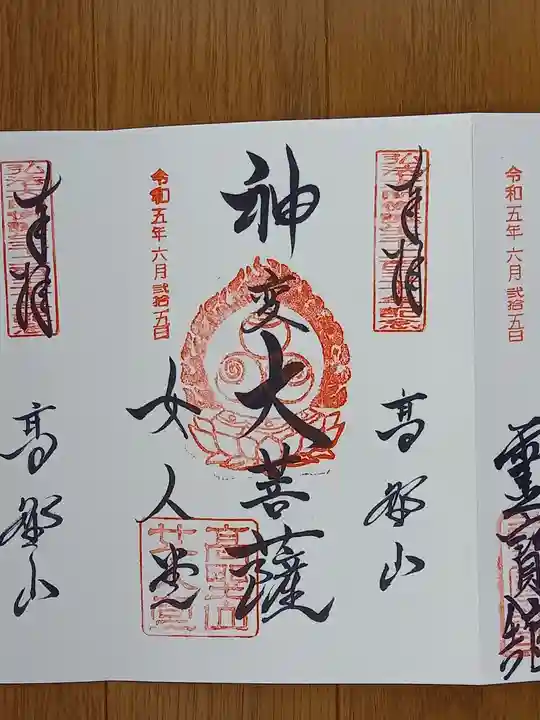 奉拝
高野山
霊宝館
令和五年六月弐拾五日
奉拝
高野山
神変大菩薩
女人堂
令和五年六月弐拾五日
奉拝
高野山